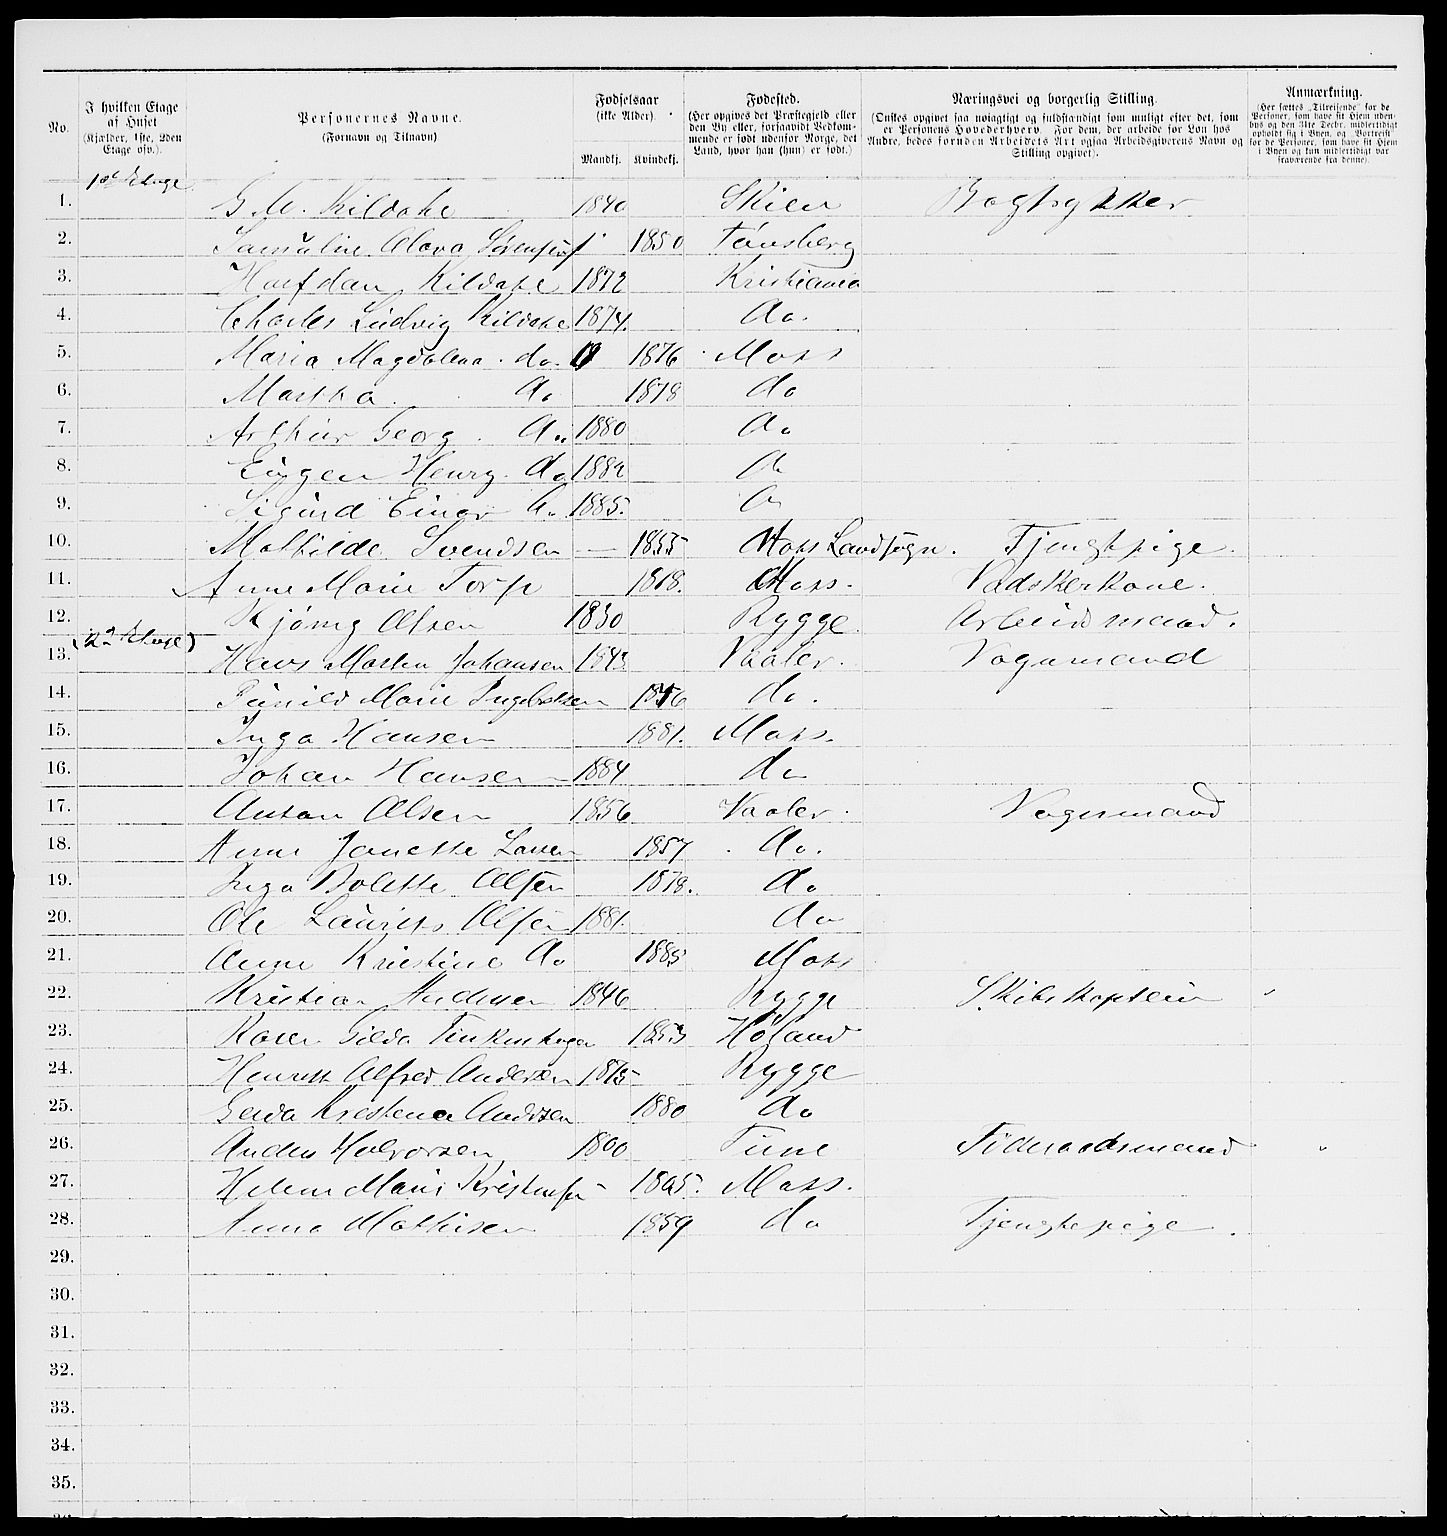 No.
I hvilken Etage af Huset (Kjælder, 1ste, 2den Etage osv.).
Personernes Navne. (Fornavn og Tilnavn)
Fødselsaar (ikke Alder). Mandkj. Kvindekj.
Fødested. (Her opgives det Præstegjeld eller den By eller, forsaavidt Vedkommende er født udenfor Norge, det Land, hvor han (hun) er født.)
Næringsvei og borgerlig Stilling. (Ønskes opgivet saa nøiagtigt og fuldstændigt som muligt efter det, som er Personens Hovederhverv. For dem, der arbeide for Løn hos Andre, bedes foruden Arbeidets Art ogsaa Arbeidsgiverens Navn og Stilling opgivet).
Anmærkning. (Her sættes „Tilreisende" for de Personer, som have sit Hjem udenbys og den 31te Decbr. midlertidigt opholdt sig i Byen, og „Bortreist" for de Personer, som have sit Hjem i Byen og kun midlertidigt var fraværende fra denne).
1st Etage
1. G. M. Kildahl 1840 Skien Bogtrykker
2. Samuline Olava Sørensen 1850 Tønsberg
3. Halfdan Kildahl 1872 Kristiania
4. Charles Ludvig Kildahl 1874. do.
5. Maria Magdalena do. 1876 Moss
6. Martha do 1878 do
7. Arthur Georg do 1880 do
8. Eugen Henry do 1882 do
9. Sigurd Einar do 1885. do
10. Mathilde Svendsen — 1855 Moss Landsogn. Tjenestpige.
11. Anne Marie Torp 1818. Moss. Vadskerkone.
12. Olsen 1830 Rygge Arbeidsmand.
(2d Etage)
13. Hans Martin Johansen 1843 Vaaler. Vognmand
14. Gunild Marie Ingebretsen 1846 do.
15. Inga Hansen 1881. Moss.
16. Johan Hansen 1884 do
17. Anton Olsen 1856 Vaaler. Vognmand
18. Anne Janette Larsen 1857 do.
19. Inga Bolette Olsen 1878. do
20. Ole Laurits Olsen 1881. do
21. Anne Kristine do 1885 Moss
22. Kristian Andersen 1846 Rygge Skibskaptein
23. Gilda 1853 Høland
24. Henrik Alfred Andersen 1875 Rygge
25. Gerda Kristena Andersen 1880 do
26. Anders Halvorsen 1800 Tune Føderaadsmand
27. Helene Marie 1805. Moss.
28. Anna Mathisen 1859 do Tjenestepige.
29.
30.
31.
32.
33.
34.
35.